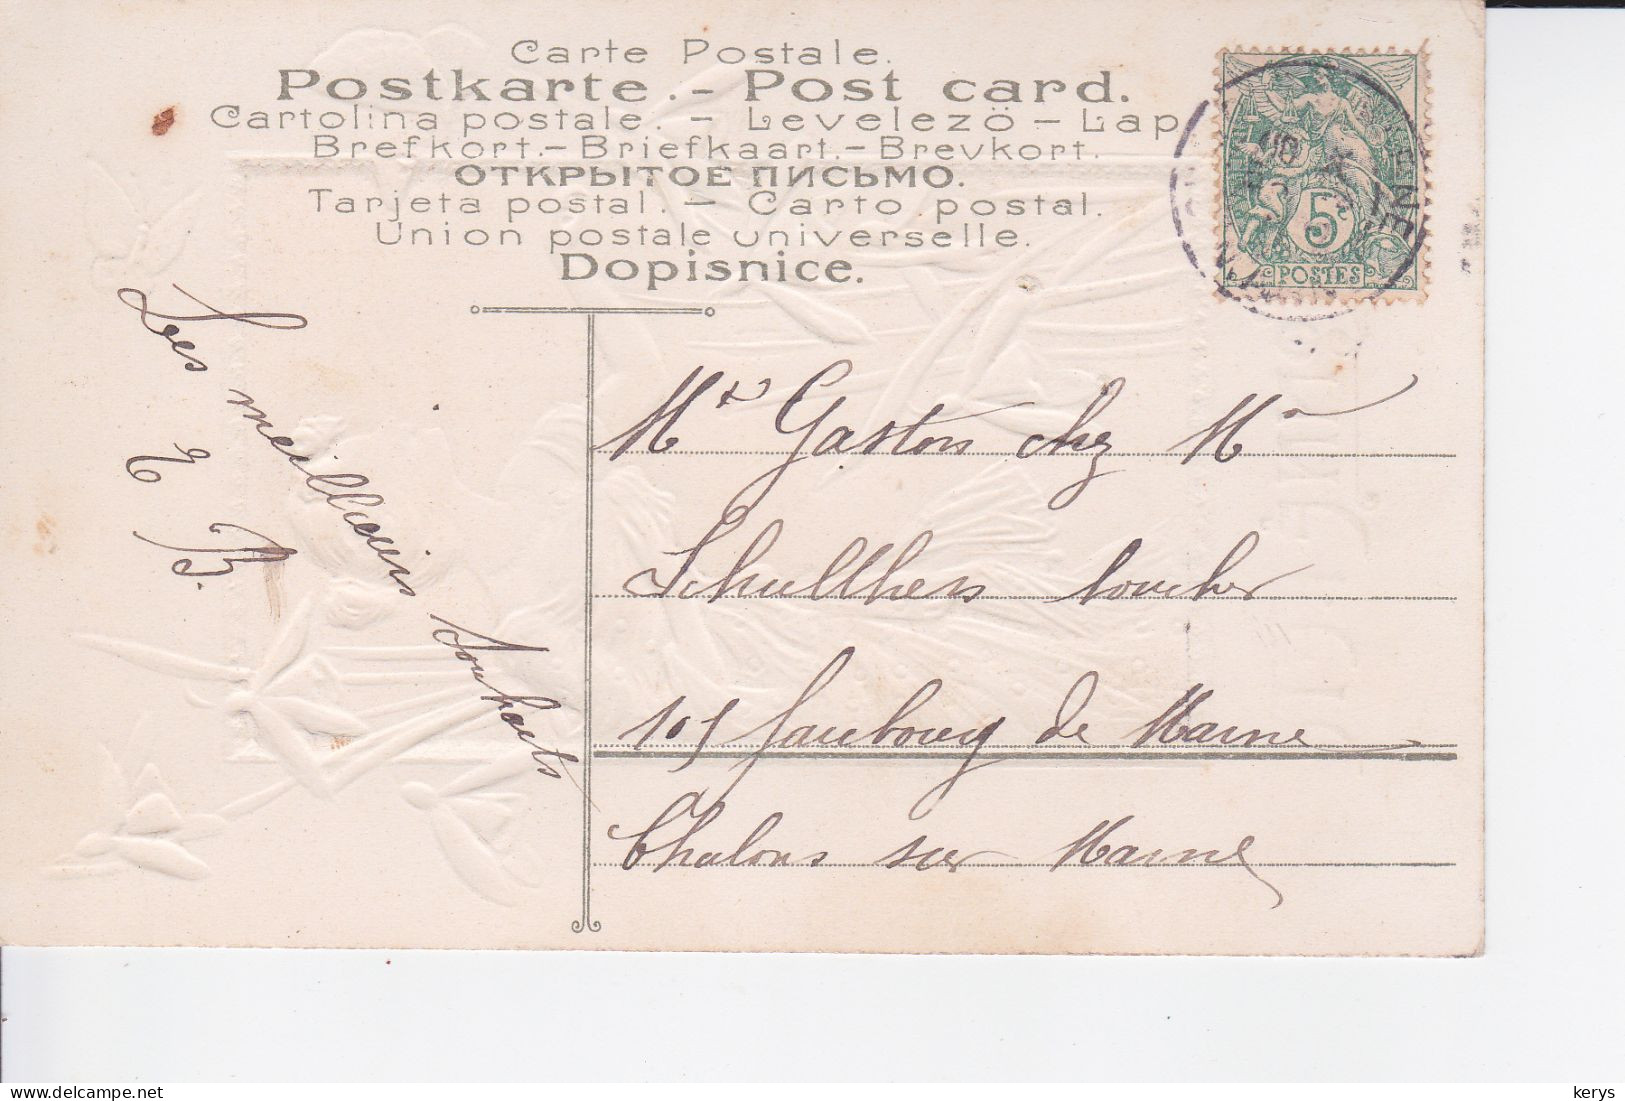 Carte Postale.
Postkarte.- Post card.
Cartolina postale. - Levelezö-Lap
Brefkort.-Briefkaart.-Brevkort.
ОТКРЫТОЕ ПИСЬМО.
Tarjeta postal. - Carto postal.
Union postale universelle.
Dopisnice.
5
POSTES
Les meilleurs souhaits
E
B.
Mr Gaston chez Mr
Schullhers boucher
105 faubourg de Marne
Chalons sur Marne
kerys